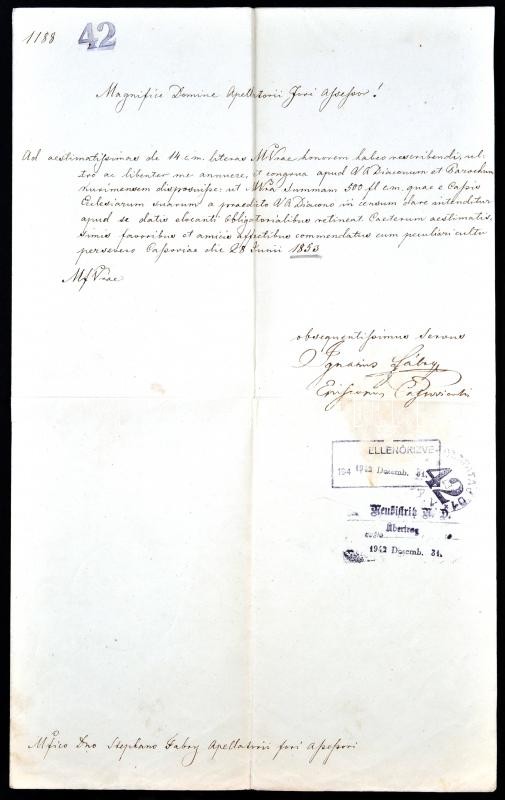 1188 42
Magnifice Domine Apellatorii Fori Assessor!
Ad aestimatissimas de 14 c.m. literas M.Vrae honorem habeo rescribendi, ul-
tro ac libenter me annuere, et congrua apud V.A.Diaconum et Parochum
disposuisse: ut M.Vra Summam 500 fl cm. quae e Cassis
Ecclesiarum suarum a praedicto V.A.Diacono in censum dare intenditur
apud se datis elocanti obligatorialibus retineat. Caeterum aestimatis-
simis favoribus et amicis affectibus commendatus cum peculiari cultu
persevero Cassoviae die 28 Junii 1853
M.Vrae
obsequentissimus servus
Ignatius Fábry
Episcopus Cassoviensis
ELLENŐRIZVE
194 1942 Dezemb. 31.
42
Neudistrik
Übertrag
1942 Dezemb. 31.
Mfico Dno Stephano Fabry Apellatorii fori Assessori